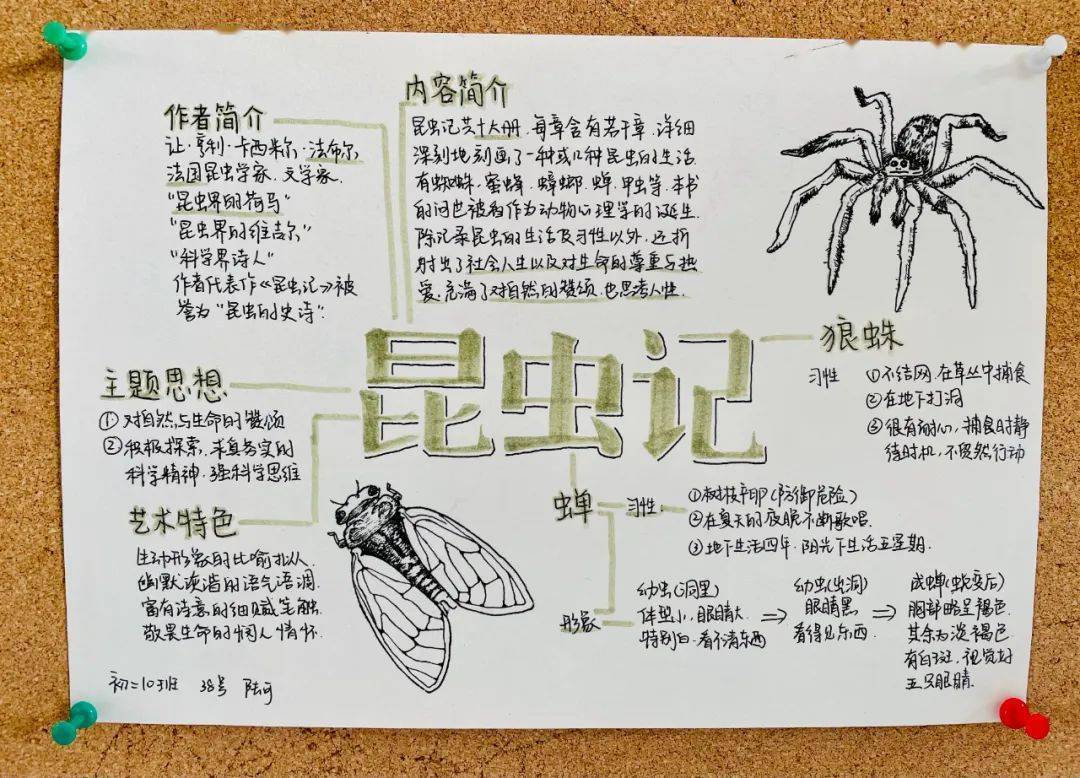 作者简介
让·亨利·卡西米尔·法布尔,
法国昆虫学家、文学家.
“昆虫界的荷马”
“昆虫界的维吉尔”
“科学界诗人”
作者代表作《昆虫记》被
誉为“昆虫的史诗”.
内容简介
昆虫记共十大册,每章含有若干章,详细
深刻地刻画了一种或几种昆虫的生活
有蜘蛛、蜜蜂、蟑螂、蝉、甲虫等.本书
的问世被看作为动物心理学的诞生.
除记录昆虫的生活及习性以外,还折
射出了社会人生以及对生命的尊重与热
爱,充满了对自然的赞颂,也思考人性.
昆虫记
狼蛛
习性
①不结网.在草丛中捕食
②在地下打洞
③很有耐心,捕食时静
待时机,不贸然行动
主题思想
①对自然与生命的赞颂
②积极探索,求真务实的
科学精神.强科学思维
艺术特色
生动形象的比喻拟人.
幽默诙谐的语气语调.
富有诗意的细腻笔触.
敬畏生命的悯人情怀.
蝉
习性
①树枝产卵(防御危险)
②在夏天的夜晚不断歌唱.
③地下生活四年.阳光下生活五星期.
形象
幼虫(洞里)
体型小,眼睛大
特别白.看不清东西
⇒
幼虫(出洞)
眼睛黑
看得见东西.
⇒
成蝉(蜕变后)
胸部略呈褐色.
其余为淡褐色
有白斑,视觉好
五只眼睛.
初二10班 38号